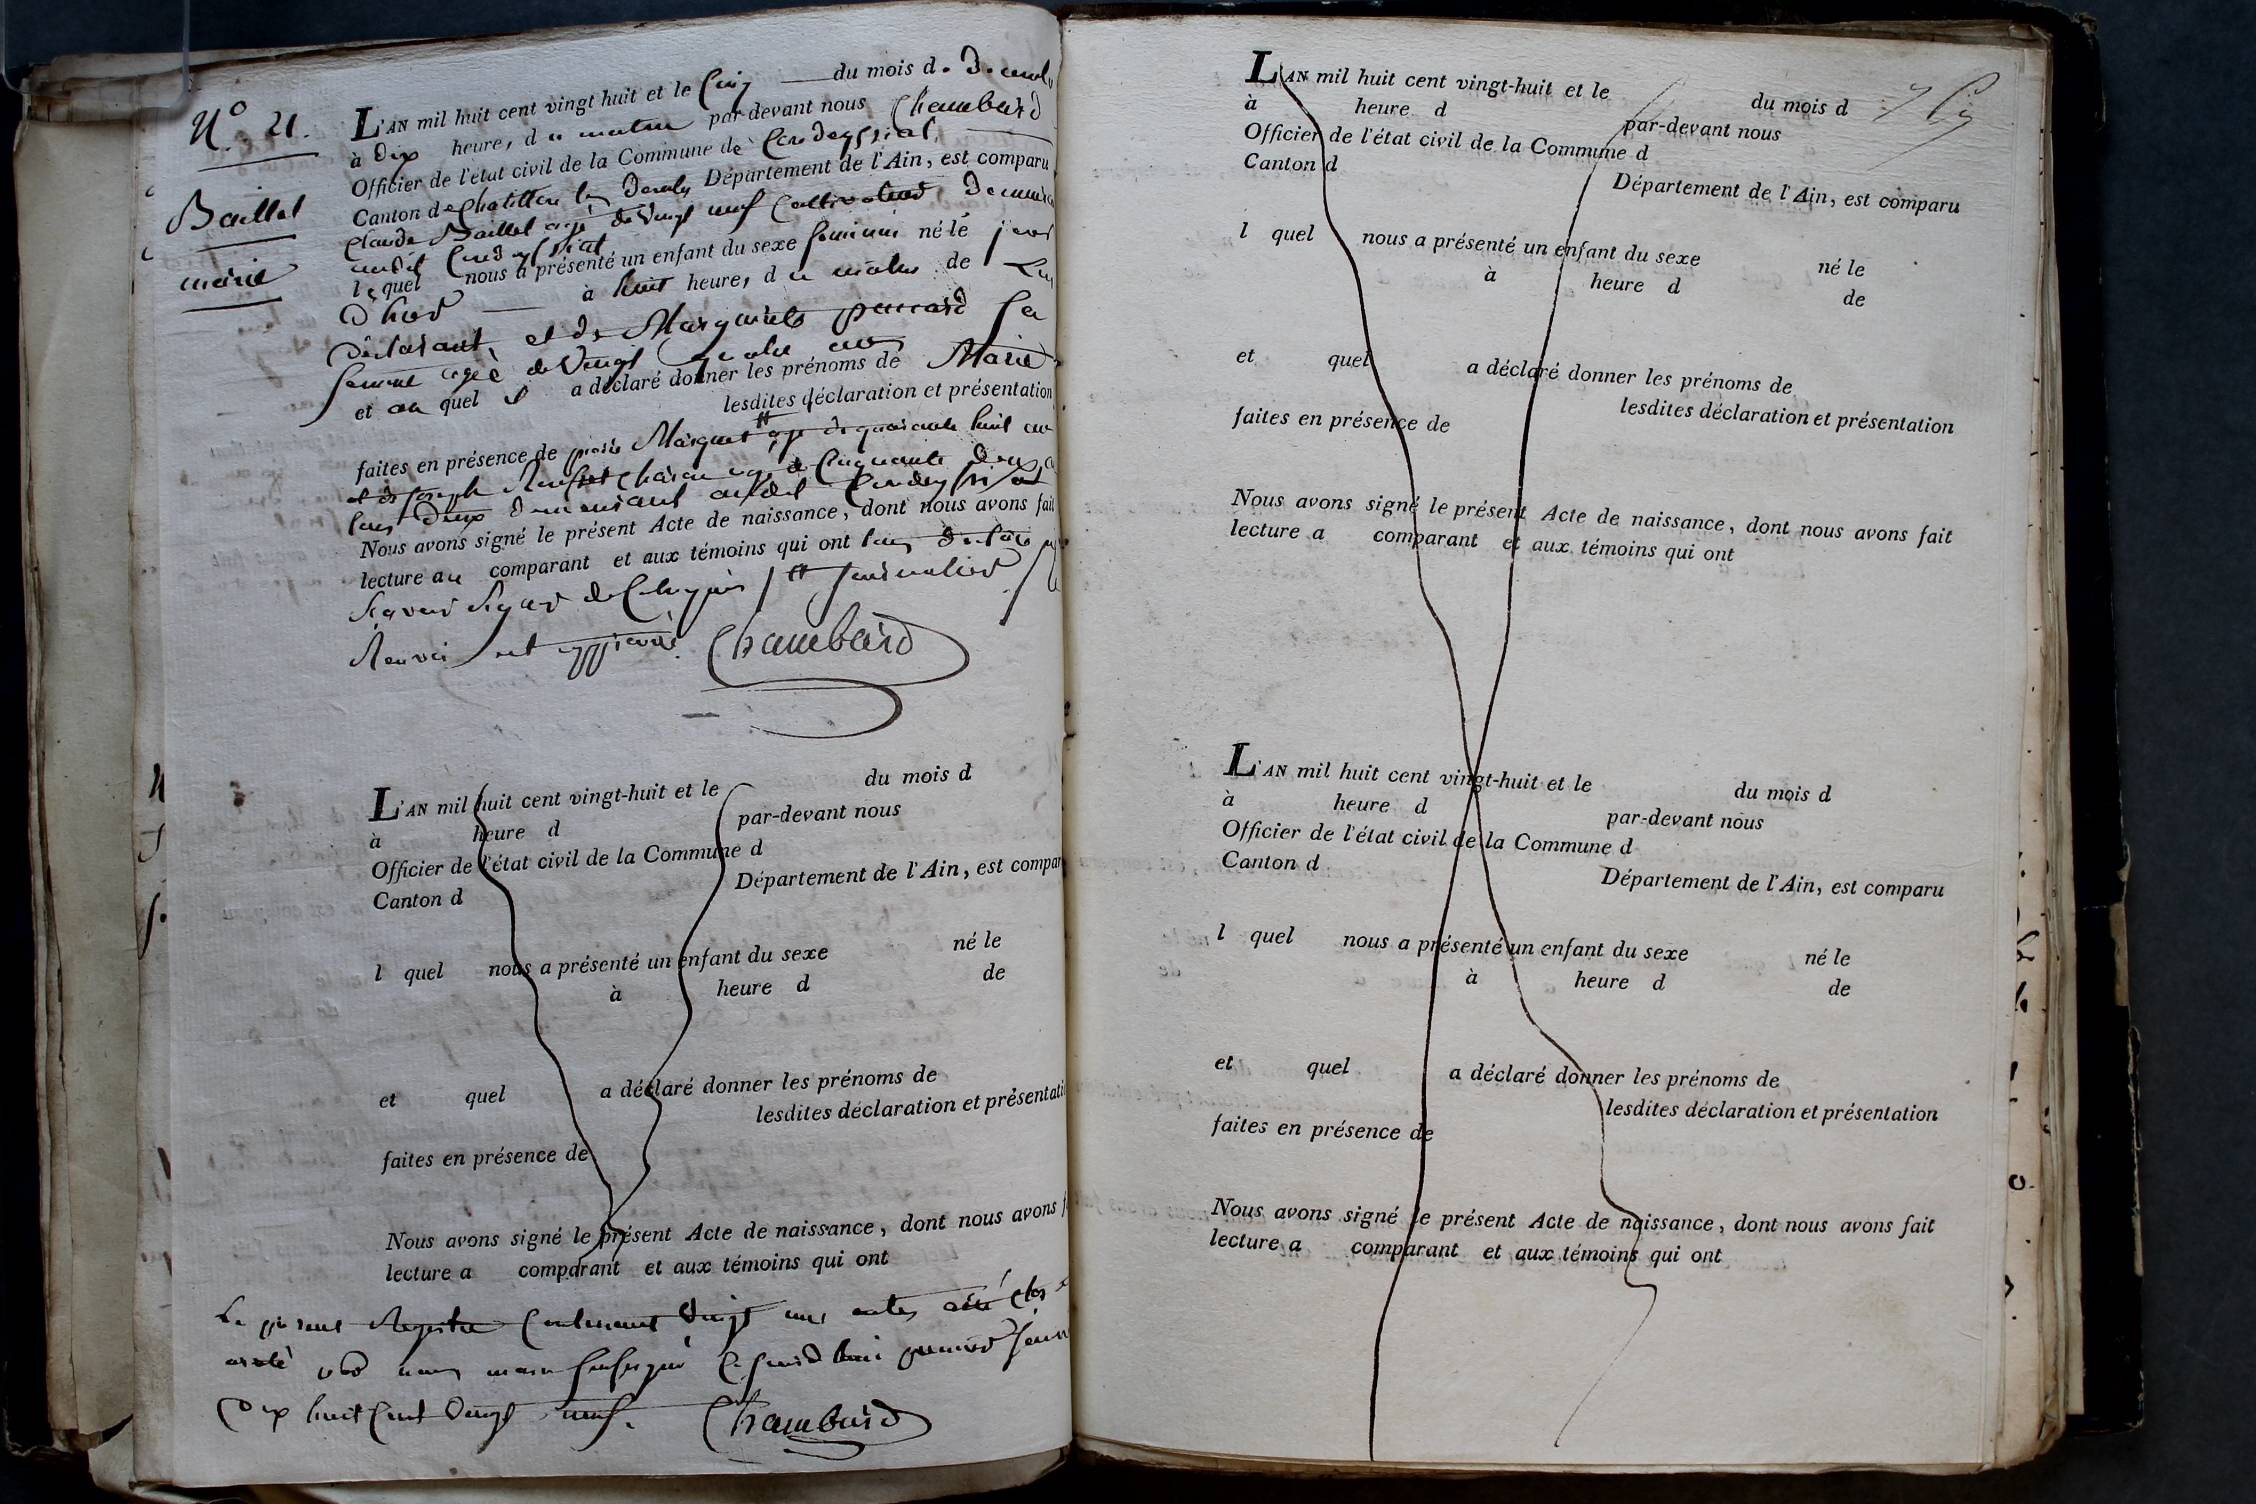 N.o 21.
Baillet
marie
L'AN mil huit cent vingt huit et le Cinq du mois de Decemb
à Dix heure, du matin par-devant nous Chambard
Officier de l'état civil de la Commune de Condeyssiat
Canton de Chatillon les Dombes Département de l'Ain, est comparu
Claude Baillet agé de Vingt neuf Cultivateur Demeura
audit Condeyssiat
lequel nous a présenté un enfant du sexe feminin né le jour
D'hier à huit heure, du matin de Lui
Déclarant et de Marguerite sa
femme agée de Vingt quatre ans
et au quel il a déclaré donner les prénoms de Marie
lesdites déclaration et présentation
faites en présence de pierre Marguet # agé de quarante huit an
et de Joseph agé de Cinquante Deux a
tous Deux Demeurant audit Condeyssiat
Nous avons signé le présent Acte de naissance, dont nous avons fait
lecture au comparant et aux témoins qui ont tous Déclaré
Savoir Signer de Ce requis / # Journalier /
Renvoi est approuvé. Chambard
L'AN mil huit cent vingt-huit et le du mois d
à heure d par-devant nous
Officier de l'état civil de la Commune d
Canton d Département de l'Ain, est compar
l quel nous a présenté un enfant du sexe né le
à heure d de
et quel a déclaré donner les prénoms de
lesdites déclaration et présentati
faites en présence de
Nous avons signé le présent Acte de naissance, dont nous avons f
lecture a comparant et aux témoins qui ont
Le présent Registre Contenant Vingt un actes a été Clos et
arrêté par nous maire soussigné Cejourd'hui premier Janv
Dix huit Cent Vingt neuf. Chambard
L'AN mil huit cent vingt-huit et le du mois d
à heure d par-devant nous
Officier de l'état civil de la Commune d
Canton d Département de l'Ain, est comparu
l quel nous a présenté un enfant du sexe né le
à heure d de
et quel a déclaré donner les prénoms de
lesdites déclaration et présentation
faites en présence de
Nous avons signé le présent Acte de naissance, dont nous avons fait
lecture a comparant et aux témoins qui ont
L'AN mil huit cent vingt-huit et le du mois d
à heure d par-devant nous
Officier de l'état civil de la Commune d
Canton d Département de l'Ain, est comparu
l quel nous a présenté un enfant du sexe né le
à heure d de
et quel a déclaré donner les prénoms de
lesdites déclaration et présentation
faites en présence de
Nous avons signé le présent Acte de naissance, dont nous avons fait
lecture a comparant et aux témoins qui ont